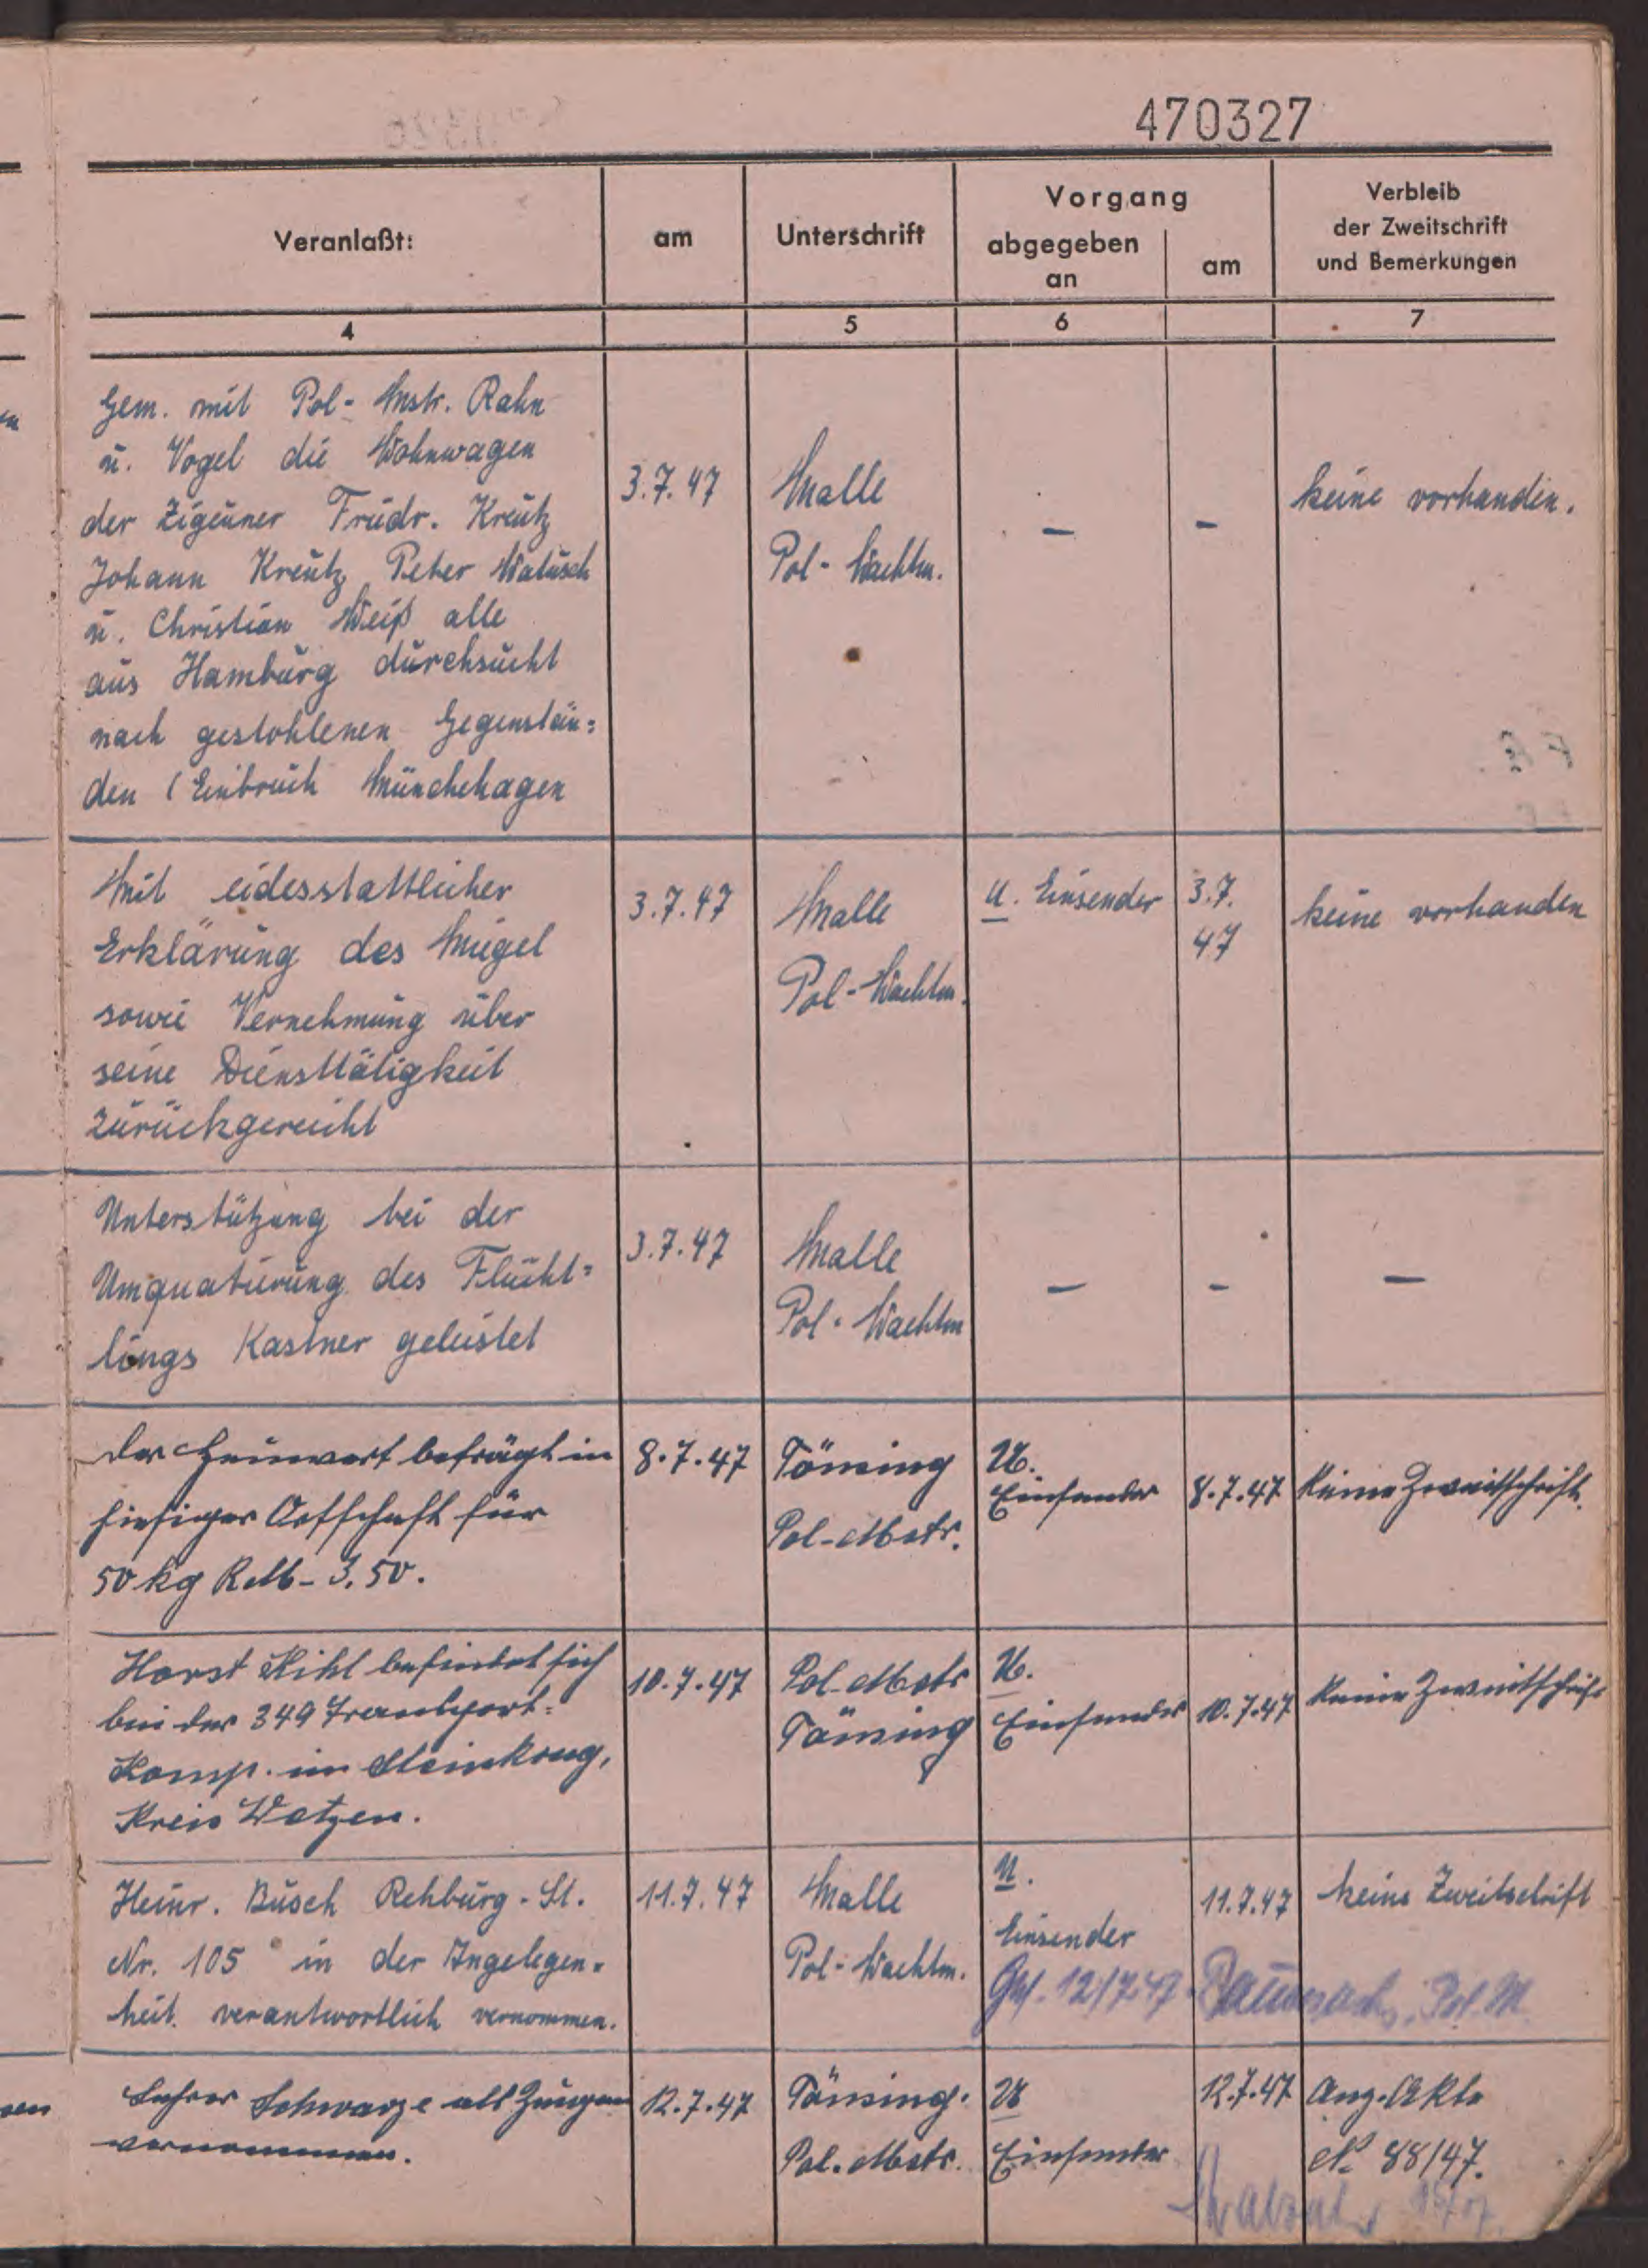 470327
Veranlaßt:
am
Unterschrift
Vorgang
abgegeben
an
am
Verbleib
der Zweitschrift
und Bemerkungen
4
5
6
7
Gem. mit Pol-Mstr. Rahn
u. Vogel die Wohnwagen
der Zigeuner Friedr. Kreutz
Johann Kreutz, Peter Watusch
u. Christian Weiß alle
aus Hamburg durchsucht
nach gestohlenen Gegenstän=
den (Einbruch Münchehagen
3.7.47
Malle
Pol-Wachtm.
–
–
keine vorhanden.
Mit eidesstattlicher
Erklärung des Miegel
sowie Vernehmung über
seine Diensttätigkeit
zurückgereicht
3.7.47
Malle
Pol-Wachtm.
U. Einsender
3.7.
47
keine vorhanden
Unterstützung bei der
Umquatierung des Flücht=
lings Kastner geleistet
3.7.47
Malle
Pol-Wachtm
–
–
–
Der Heuwert beträgt in
hiesiger Ortschaft für
50 kg RM-3,50.
8.7.47
Tönsing
Pol-Mstr.
U.
Einsender
8.7.47
Keine Zweitschrift.
Horst befindet sich
bei der 349 Transport=
Komp. im Steinkrug,
Kreis
10.7.47
Pol-Mstr
Tönsing
U.
Einsender
10.7.47
Keine Zweitschrift
Heinr. Busch Rehburg-St.
Nr. 105 in der Angelegen=
heit verantwortlich vernommen.
11.7.47
Malle
Pol-Wachtm.
U.
Einsender
11.7.47
keine Zweitschrift
Ges. 12/7.47 Pol.M.
Lehrer Schwarze als Zeugen
vernommen.
12.7.47
Tönsing.
Pol.Mstr.
U
Einsender
12.7.47
Anz.Akte
No 88/47.